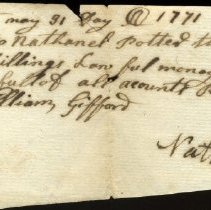 may 31 Day 1771
Nathanel Potter
illings Law ful money
full of all acounts
illiam Gifford
Nat